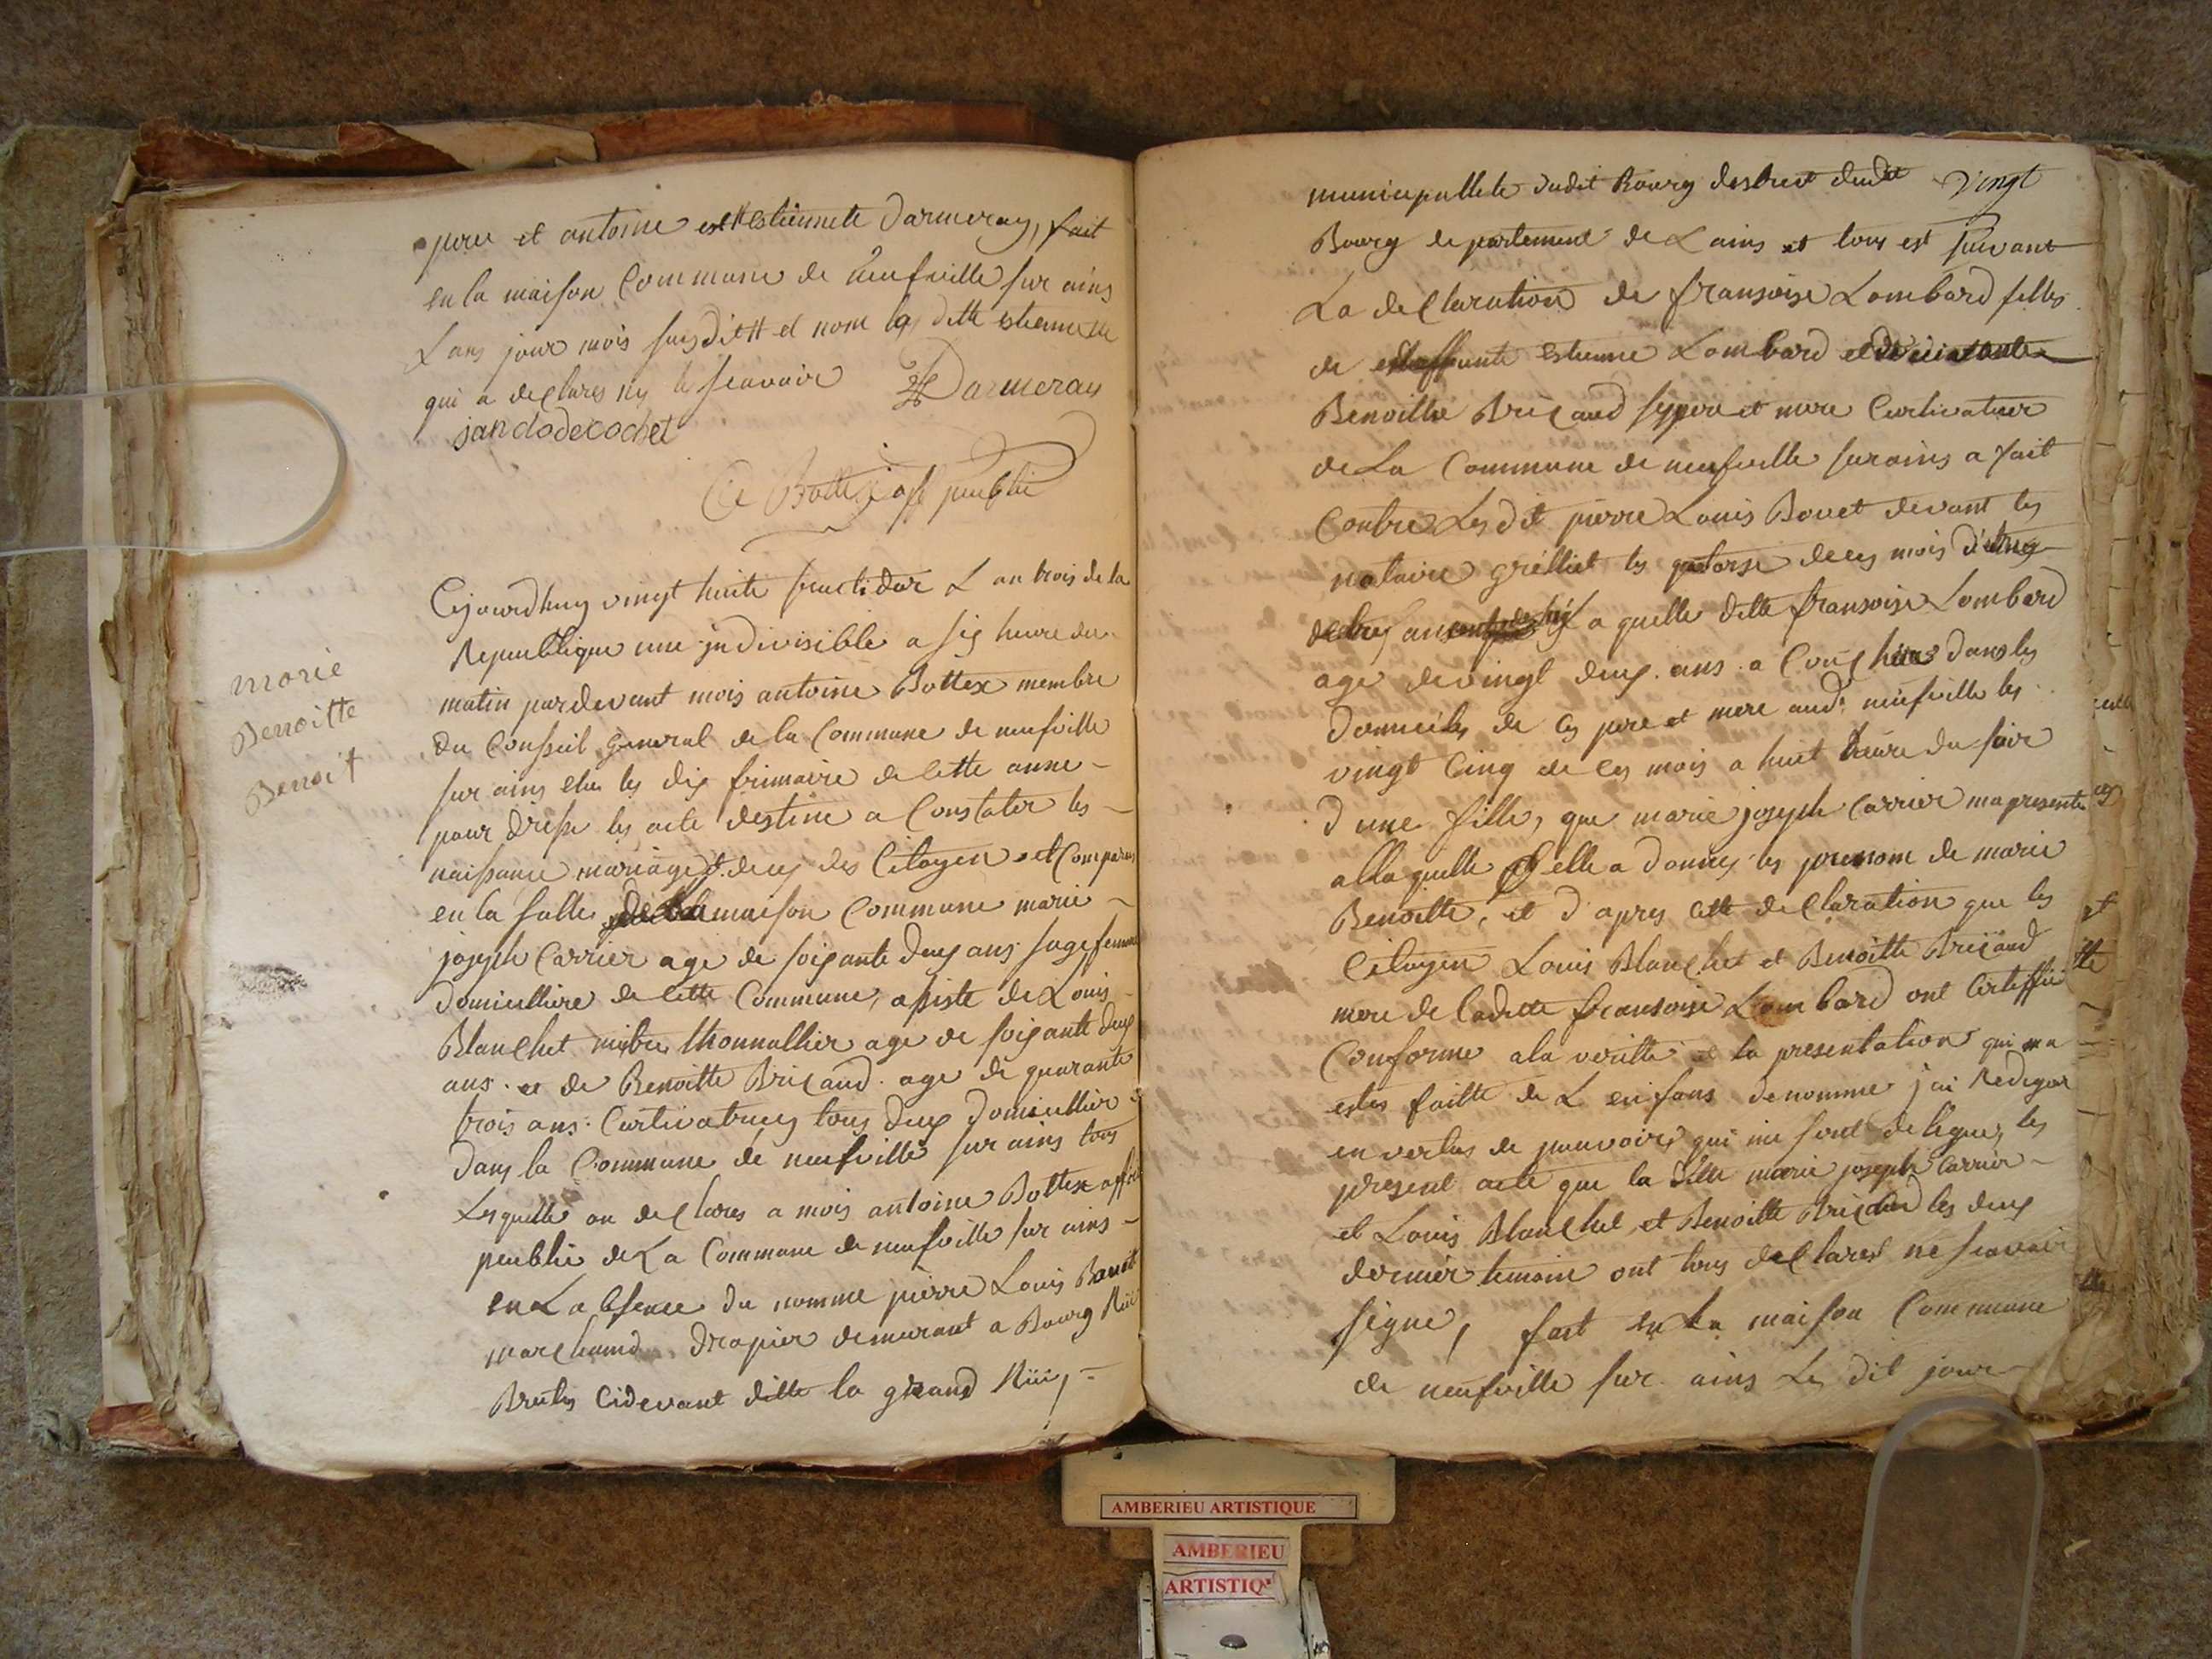 pere et antoine et estiennete Darmeray, fait
en la maison Commune de neufville sur ains
Lans jour mois susdit et nom la ditte estiennette
qui a declares ny le scavoir Darmeray
janclodecochet
Bottex off publie
Cejourdhuy vingt huite fructidor L an trois de la
Republique une indivisible a six heure du
matin pardevant mois antoine Bottex membre
du Conseil general de la Commune de neufville
sur ains elus les dix frimaire de cette anne
pour dresse les acte destine a Constater les
naissance mariage deces des Citoyen et Comparus
en la salle de la maison Commune marie
joseph Carrier age de soixante deux ans sage femme
domicilliere de cette Commune, assiste de Louis
Blanchet thonnallier age de soixante deux
ans. et de Benoitte Brixaud. age de quarante
trois ans. Curtivatrices tous deux domicillier
dans la Commune de neufville sur ains tous
Lesquelle on declares a mois antoine Bottex offise
peublie de La Commune de neufville sur ains
en L absence du nomme pierre Louis Bouet
marchamd Drapier demurant a Bourg Rue
Brutus cidevant ditte la grand Rüe,
marie
Benoitte
Benoit
municipallete dudit Bourg destrest dudit vingt
Bourg departement de Lains et tous est suivant
La declaration de fransoise Lombard filles
de estienne Lombard
Benoitte Brixaud ses pere et mere Curtivateur
de La Commune de neufville sur ains a fait
Contre Les dit pierre Louis Bouet devant les
notaire grelliet les quatorse de ces mois
Laquelle ditte fransoise Lombard
age de vingt deux. ans. a Couchée dans les
domicile de ces pere et mere aud. neufville les
vingt cinq de ces mois a huit heure du soir
d une fille, que marie joseph Carrier ma presente
alla quelle elle a donnes les prenom de marie
Benoitte, et d apres cette declaration que les
Citoyen Louis Blanchet et Benoitte Brixaud
mere de Ladette fransoise Lombard ont Certiffié
Conforme a la veritté et la presentation qui ma
estes faitte de L enfans denomme j ai Rediger
en vertus de pouvoirs qui me sont delegues les
present acte que la ditte marie joseph Carrier
et Louis Blanchet et Benoitte Brixaud les deux
dernier temoin ont tous declares ne scavoir
signe, fait en La maison Commune
de neufville sur ains Les dit jour
AMBERIEU ARTISTIQUE
AMBERIEU
ARTISTIQ